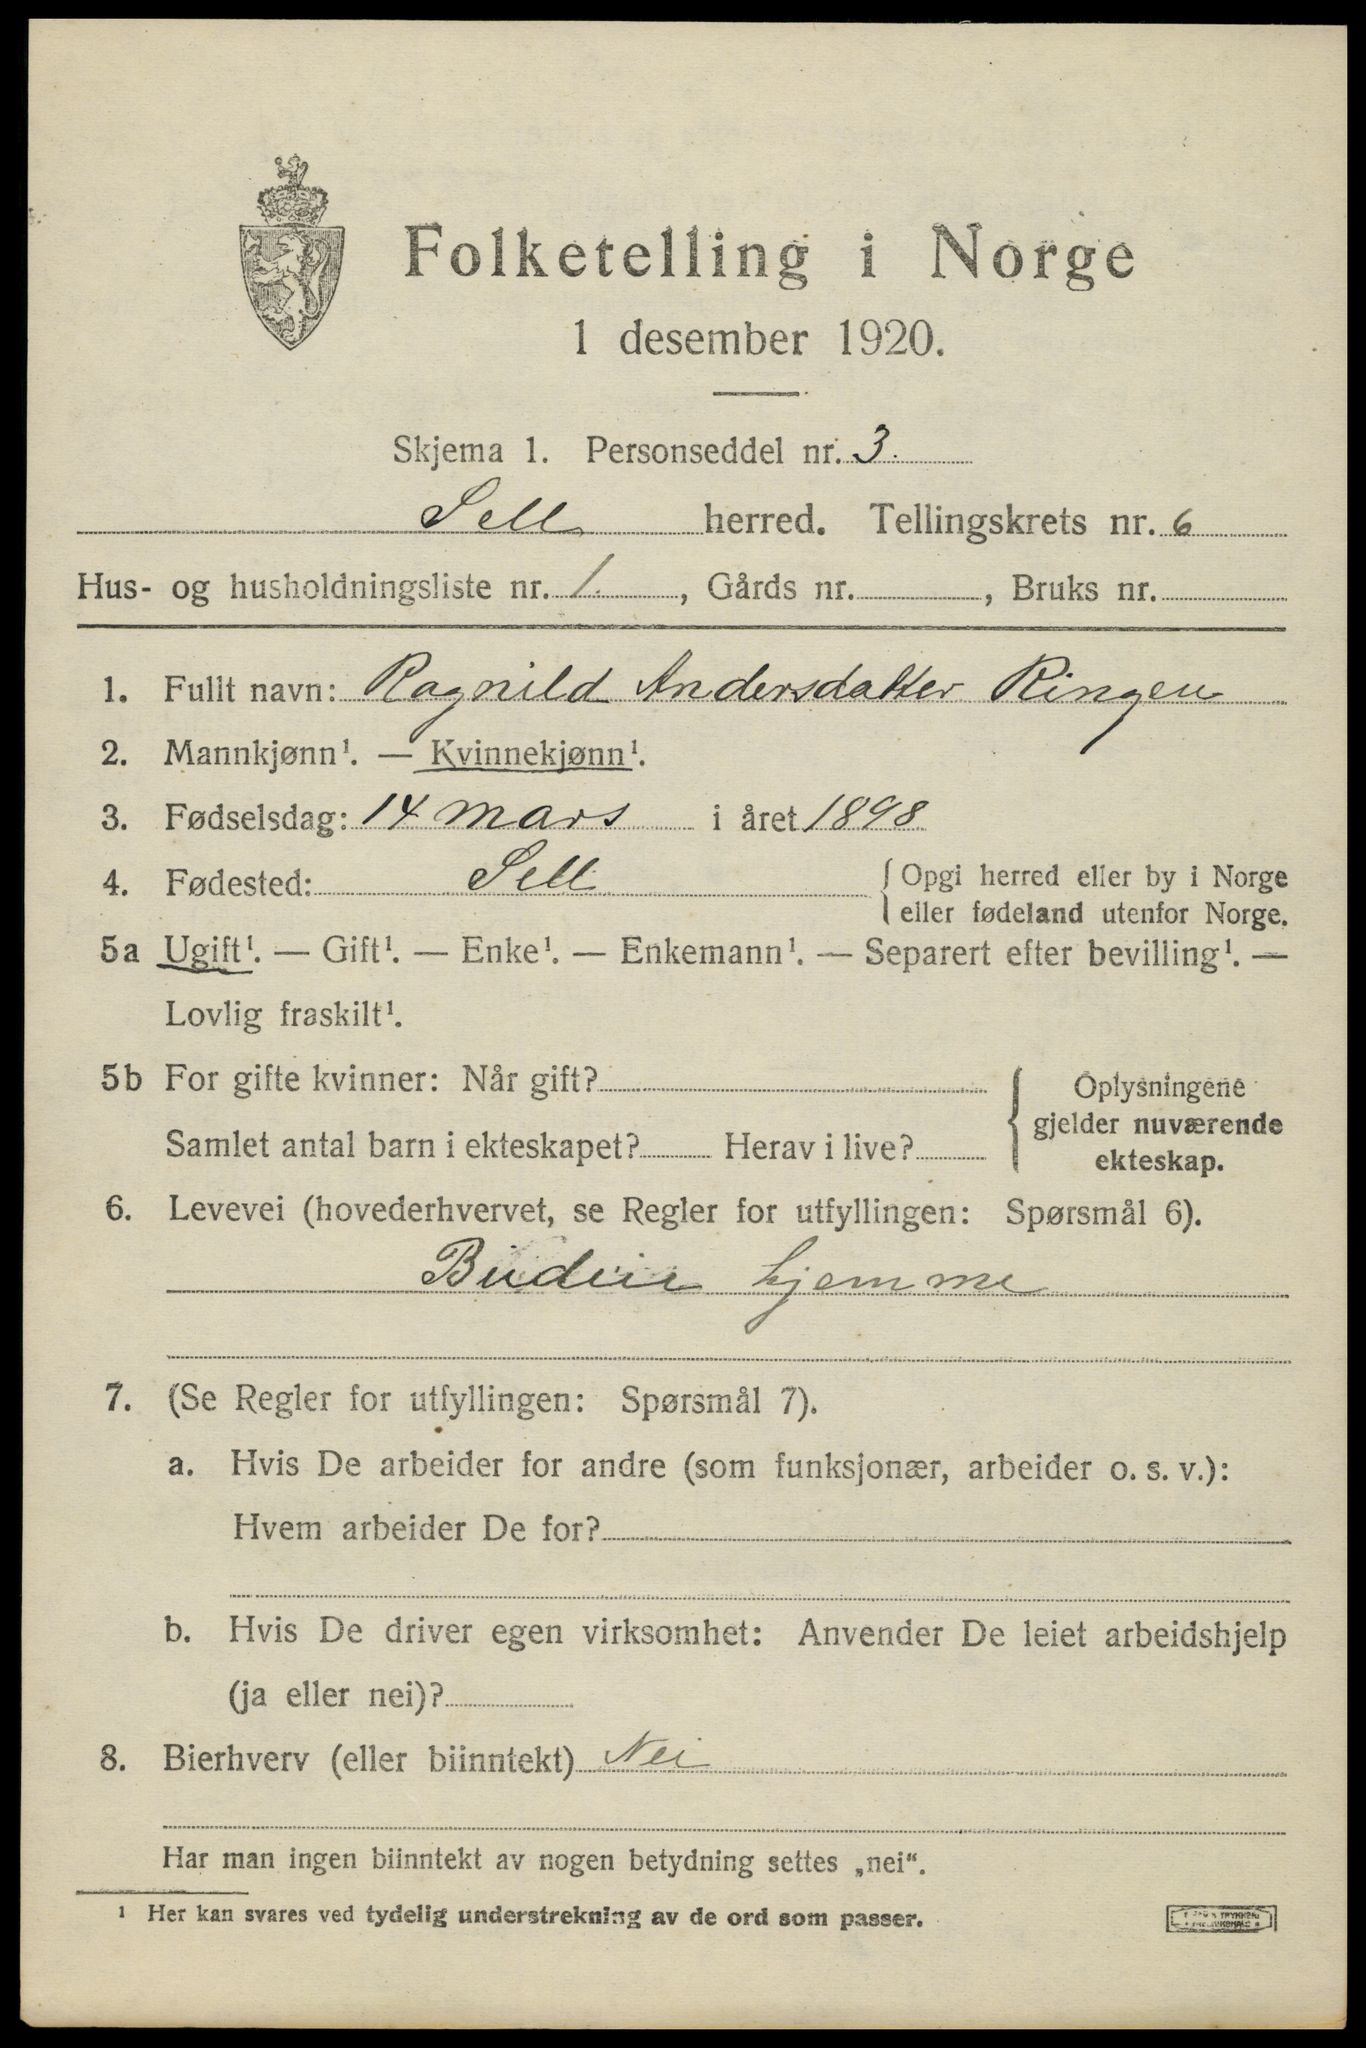 Folketelling i Norge
1 desember 1920.
Skjema 1. Personseddel nr. 3.
Sell herred. Tellingskrets nr. 6
Hus- og husholdningsliste nr. 1. , Gårds nr. , Bruks nr.
1. Fullt navn: Ragnild Andersdatter Ringen
2. Mannkjønn¹. — Kvinnekjønn¹.
3. Fødselsdag: 14 mars i året 1898
4. Fødested: Sell { Opgi herred eller by i Norge
eller fødeland utenfor Norge.
5a Ugift¹. — Gift¹. — Enke¹. — Enkemann¹. — Separert efter bevilling¹. —
Lovlig fraskilt¹.
5b For gifte kvinner: Når gift?
Samlet antal barn i ekteskapet? Herav i live?
{ Oplysningene
gjelder nuværende
ekteskap.
6. Levevei (hovederhvervet, se Regler for utfyllingen: Spørsmål 6).
Budeie hjemme
7. (Se Regler for utfyllingen: Spørsmål 7).
a. Hvis De arbeider for andre (som funksjonær, arbeider o. s. v.):
Hvem arbeider De for?
b. Hvis De driver egen virksomhet: Anvender De leiet arbeidshjelp
(ja eller nei)?
8. Bierhverv (eller biinntekt) Nei
Har man ingen biinntekt av nogen betydning settes „nei“.
¹ Her kan svares ved tydelig understrekning av de ord som passer.